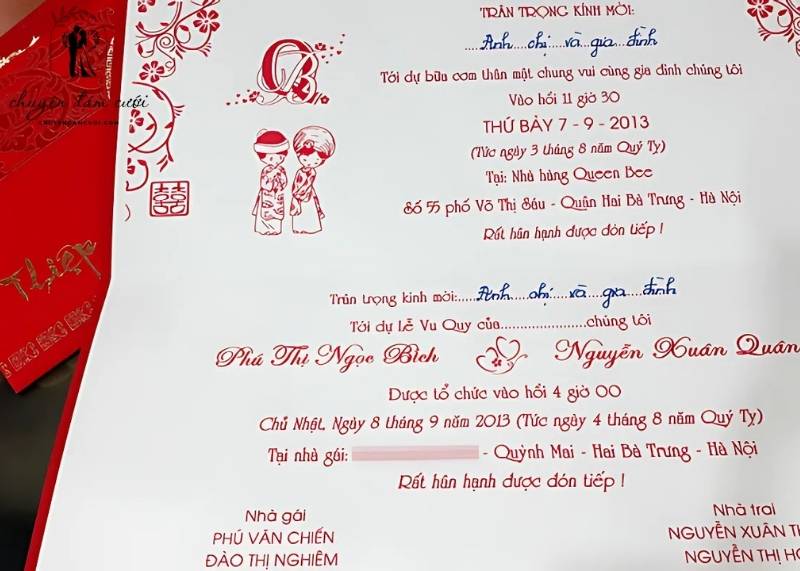 TRÂN TRỌNG KÍNH MỜI:
Anh chị và gia đình
Tới dự bữa cơm thân mật chung vui cùng gia đình chúng tôi
Vào hồi 11 giờ 30
THỨ BẢY 7 - 9 - 2013
(Tức ngày 3 tháng 8 năm Quý Tỵ)
Tại: Nhà hàng Queen Bee
Số 55 phố Võ Thị Sáu - Quận Hai Bà Trưng - Hà Nội
Rất hân hạnh được đón tiếp !
Trân trọng kính mời:.....Anh chị và gia đình
Tới dự Lễ Vu Quy của.......................chúng tôi
Phú Thị Ngọc Bích
Nguyễn Xuân Quân
Được tổ chức vào hồi 4 giờ 00
Chủ Nhật, Ngày 8 tháng 9 năm 2013 (Tức ngày 4 tháng 8 năm Quý Tỵ)
Tại nhà gái: - Quỳnh Mai - Hai Bà Trưng - Hà Nội
Rất hân hạnh được đón tiếp !
Nhà gái
PHÚ VĂN CHIẾN
ĐÀO THỊ NGHIÊM
Nhà trai
NGUYỄN XUÂN
NGUYỄN THỊ
chuyện tám cưới
Thiệp
囍